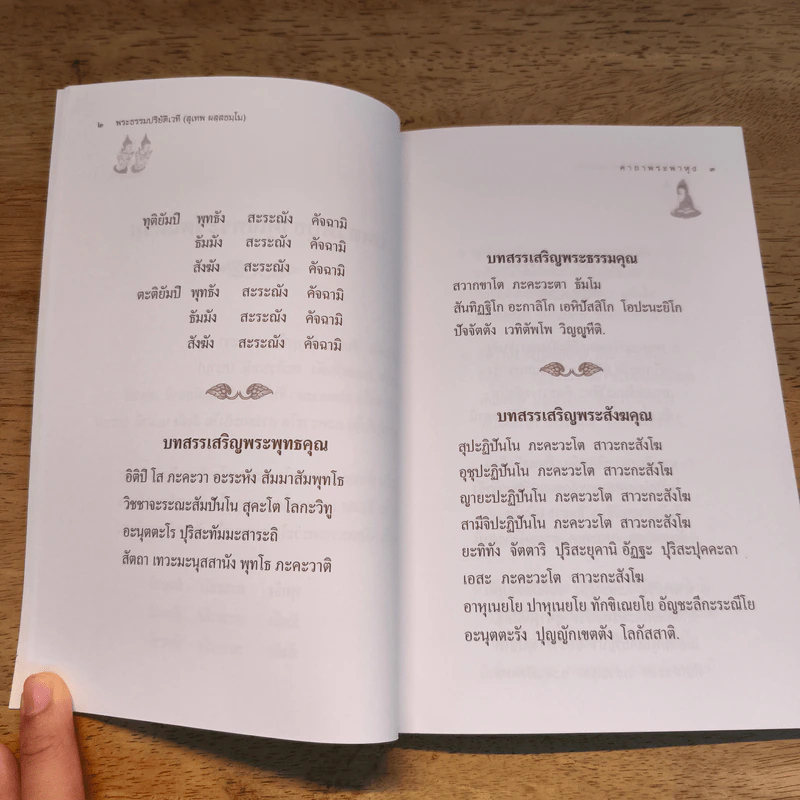 ๒ พระธรรมปริยัติเวที (สุเทพ ผสฺสธมฺโม)
ทุติยัมปี พุทธัง สะระณัง คัจฉามิ
ธัมมัง สะระณัง คัจฉามิ
สังฆัง สะระณัง คัจฉามิ
ตะติยัมปี พุทธัง สะระณัง คัจฉามิ
ธัมมัง สะระณัง คัจฉามิ
สังฆัง สะระณัง คัจฉามิ
บทสรรเสริญพระพุทธคุณ
อิติปี โส ภะคะวา อะระหัง สัมมาสัมพุทโธ
วิชชาจะระณะสัมปันโน สุคะโต โลกะวิทู
อะนุตตะโร ปุริสะทัมมะสาระถิ
สัตถา เทวะมะนุสสานัง พุทโธ ภะคะวาติ
คาถาพระพาหุง ๓
บทสรรเสริญพระธรรมคุณ
สวากขาโต ภะคะวะตา ธัมโม
สันทิฏฐิโก อะกาลิโก เอหิปัสสิโก โอปะนะยิโก
ปัจจัตตัง เวทิตัพโพ วิญญูหีติ.
บทสรรเสริญพระสังฆคุณ
สุปะฏิปันโน ภะคะวะโต สาวะกะสังโฆ
อุชุปะฏิปันโน ภะคะวะโต สาวะกะสังโฆ
ญายะปะฏิปันโน ภะคะวะโต สาวะกะสังโฆ
สามีจิปะฏิปันโน ภะคะวะโต สาวะกะสังโฆ
ยะทิทัง จัตตาริ ปุริสะยุคานิ อัฏฐะ ปุริสะปุคคะลา
เอสะ ภะคะวะโต สาวะกะสังโฆ
อาหุเนยโย ปาหุเนยโย ทักขิเณยโย อัญชะลีกะระณีโย
อะนุตตะรัง ปุญญักเขตตัง โลกัสสาติ.